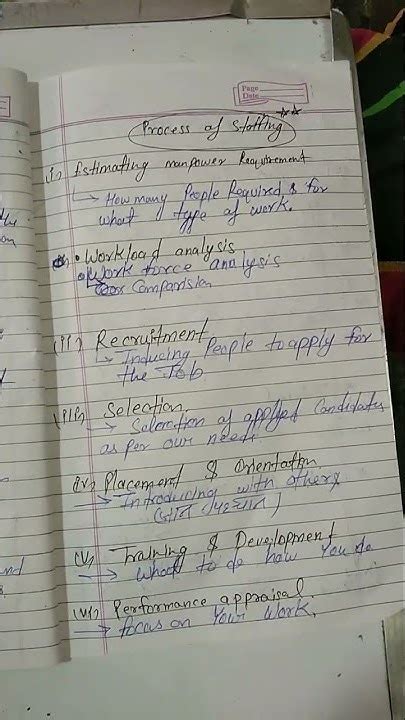 Page
Date
Process of Staffing
(i) Estimating manpower Requirement
↳ How many People Required & for
what type of work.
• Workload analysis
• Work force analysis
Comparision
(ii) Recruitment
↳ Inducing People to apply for
the Job
(iii) Selection.
→ Selection of applied Candidates
as per our need
(iv) Placement & Orientation
→ Introducing with others
(जान पहचान)
(v) Training & Development
→ What to do how you do
(vi) Performance appraisal.
→ focus on Your Work.